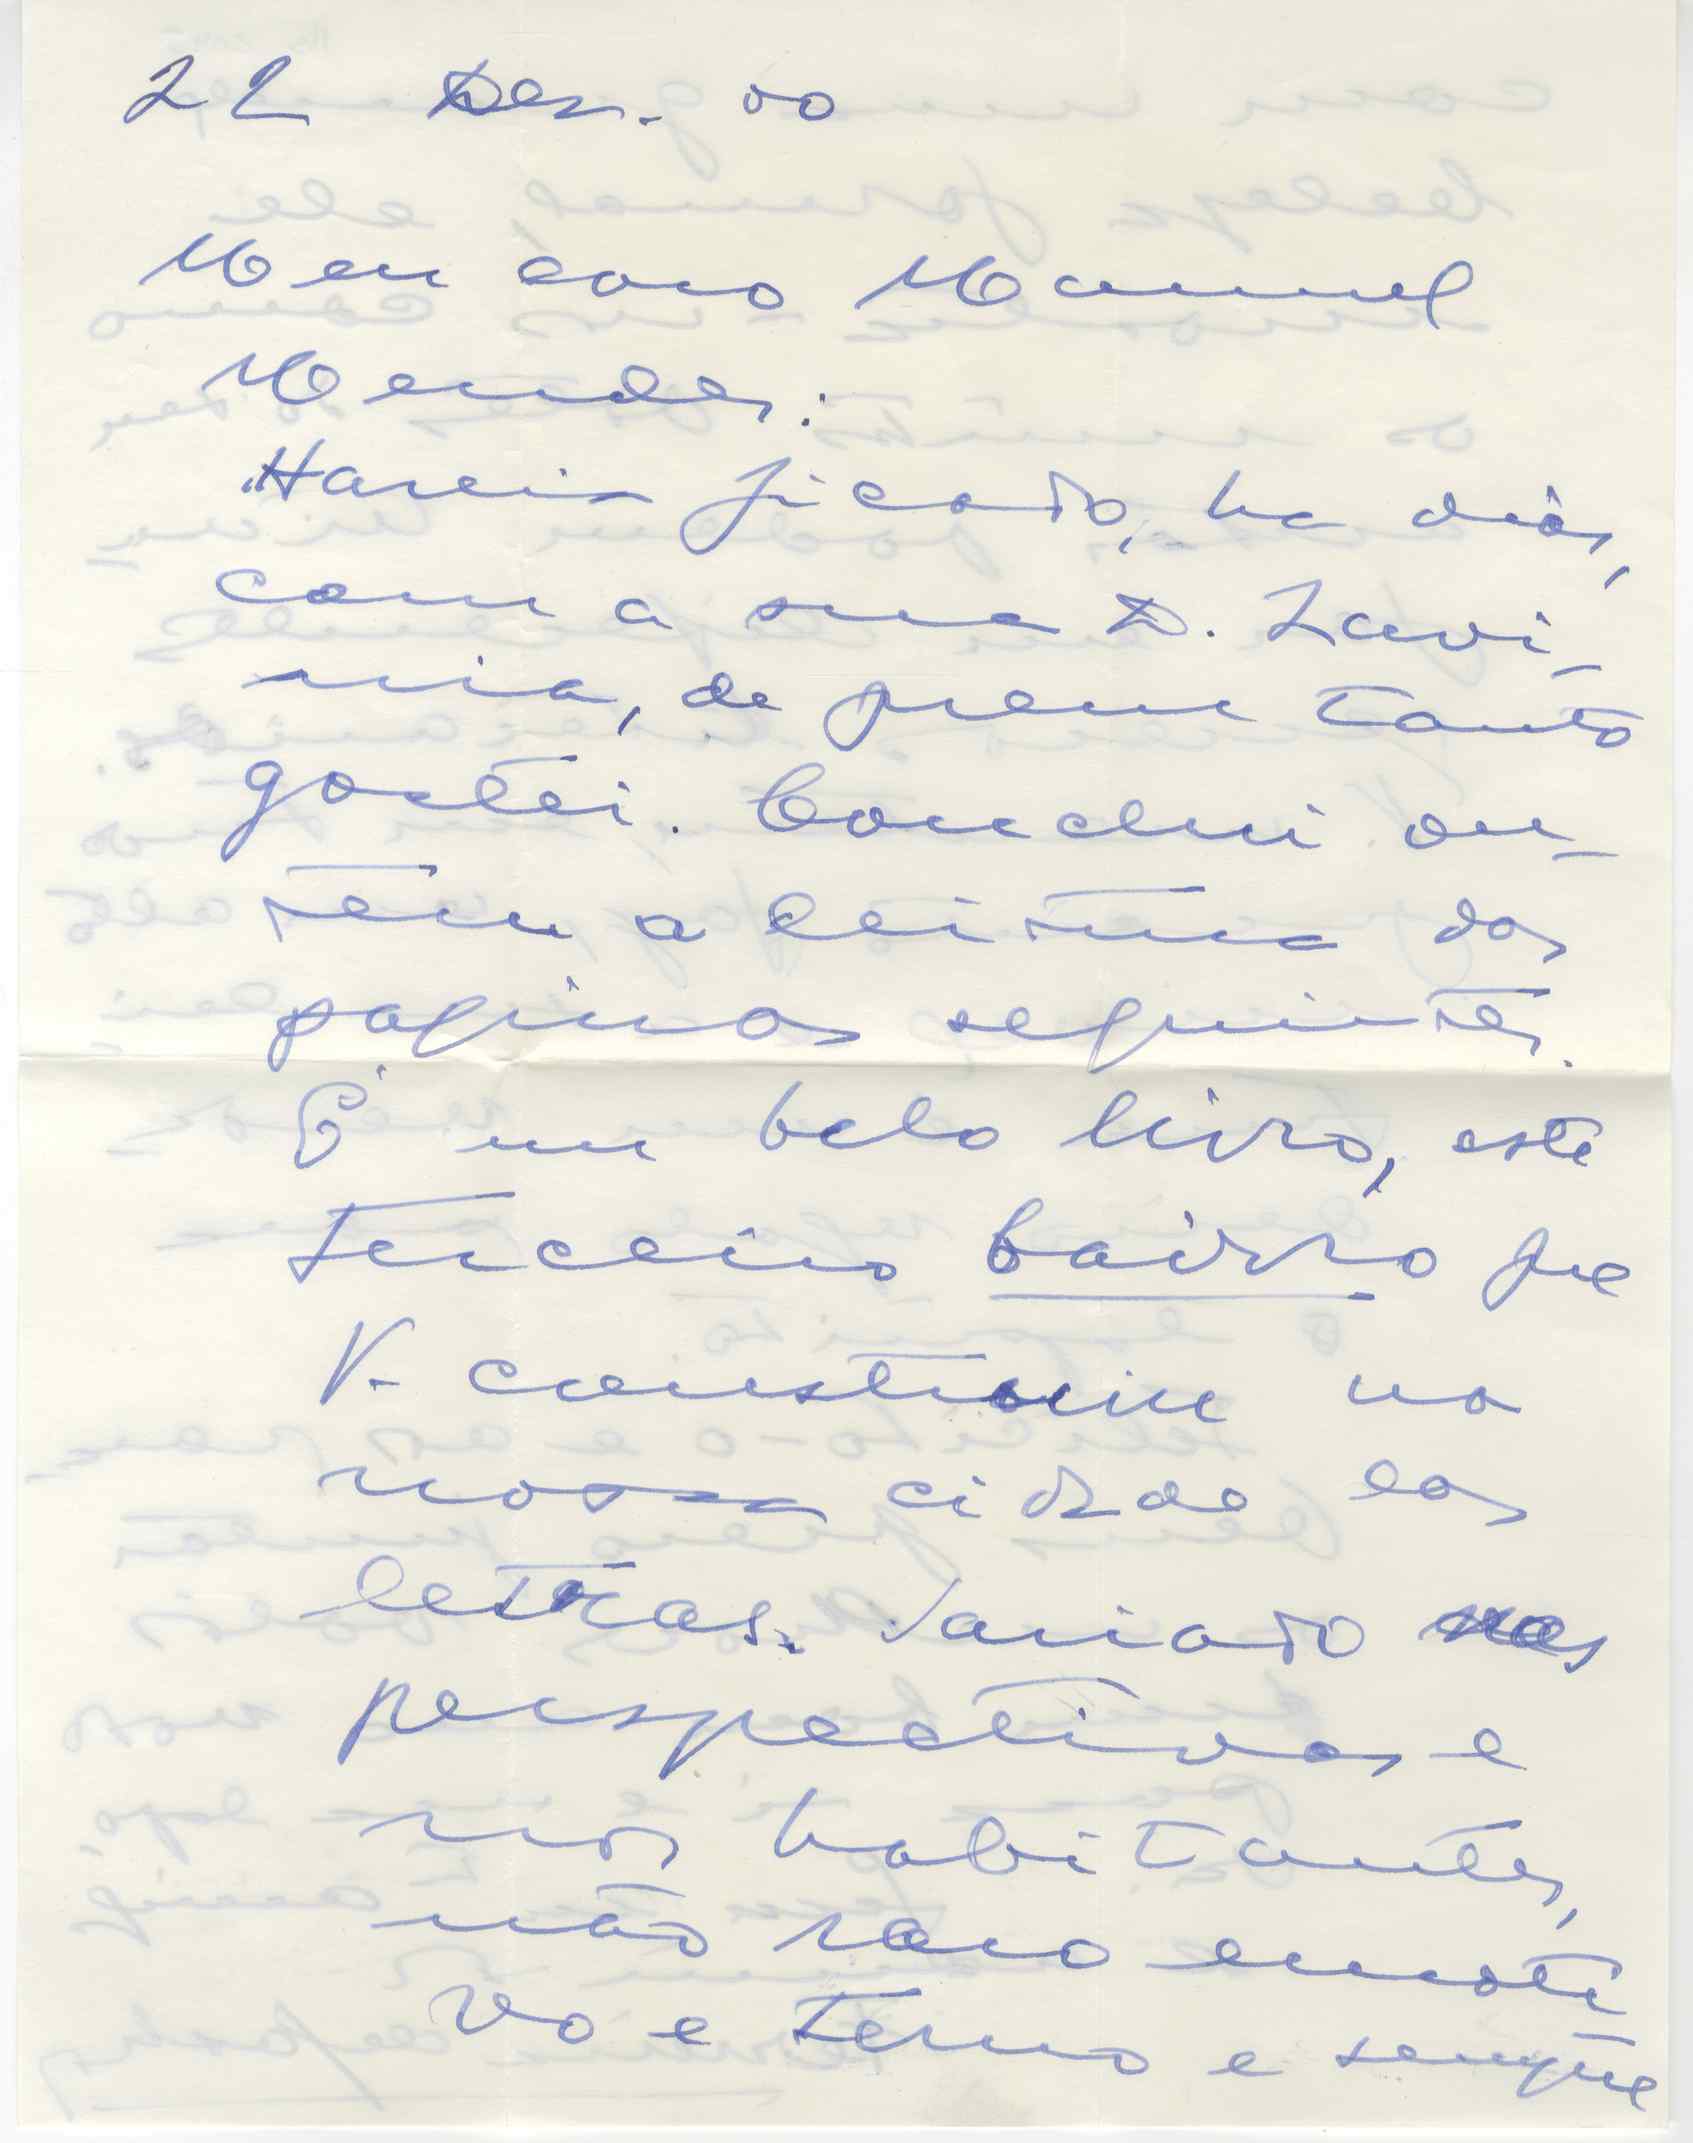 22 Dez. 60
Meu caro Manuel
Mendes:
Haveis ficado, ha dias,
com a sua D. Lavi-
nia, de quem tanto
gostei. Conclui on-
tem a leitura das
paginas seguintes.
É um belo livro, este
terceiro bairro que
V. construiu na
nossa cidade das
letras. Variado nas
perspectivas e
nos habitantes,
não raro emoti
vo e terno e sempre